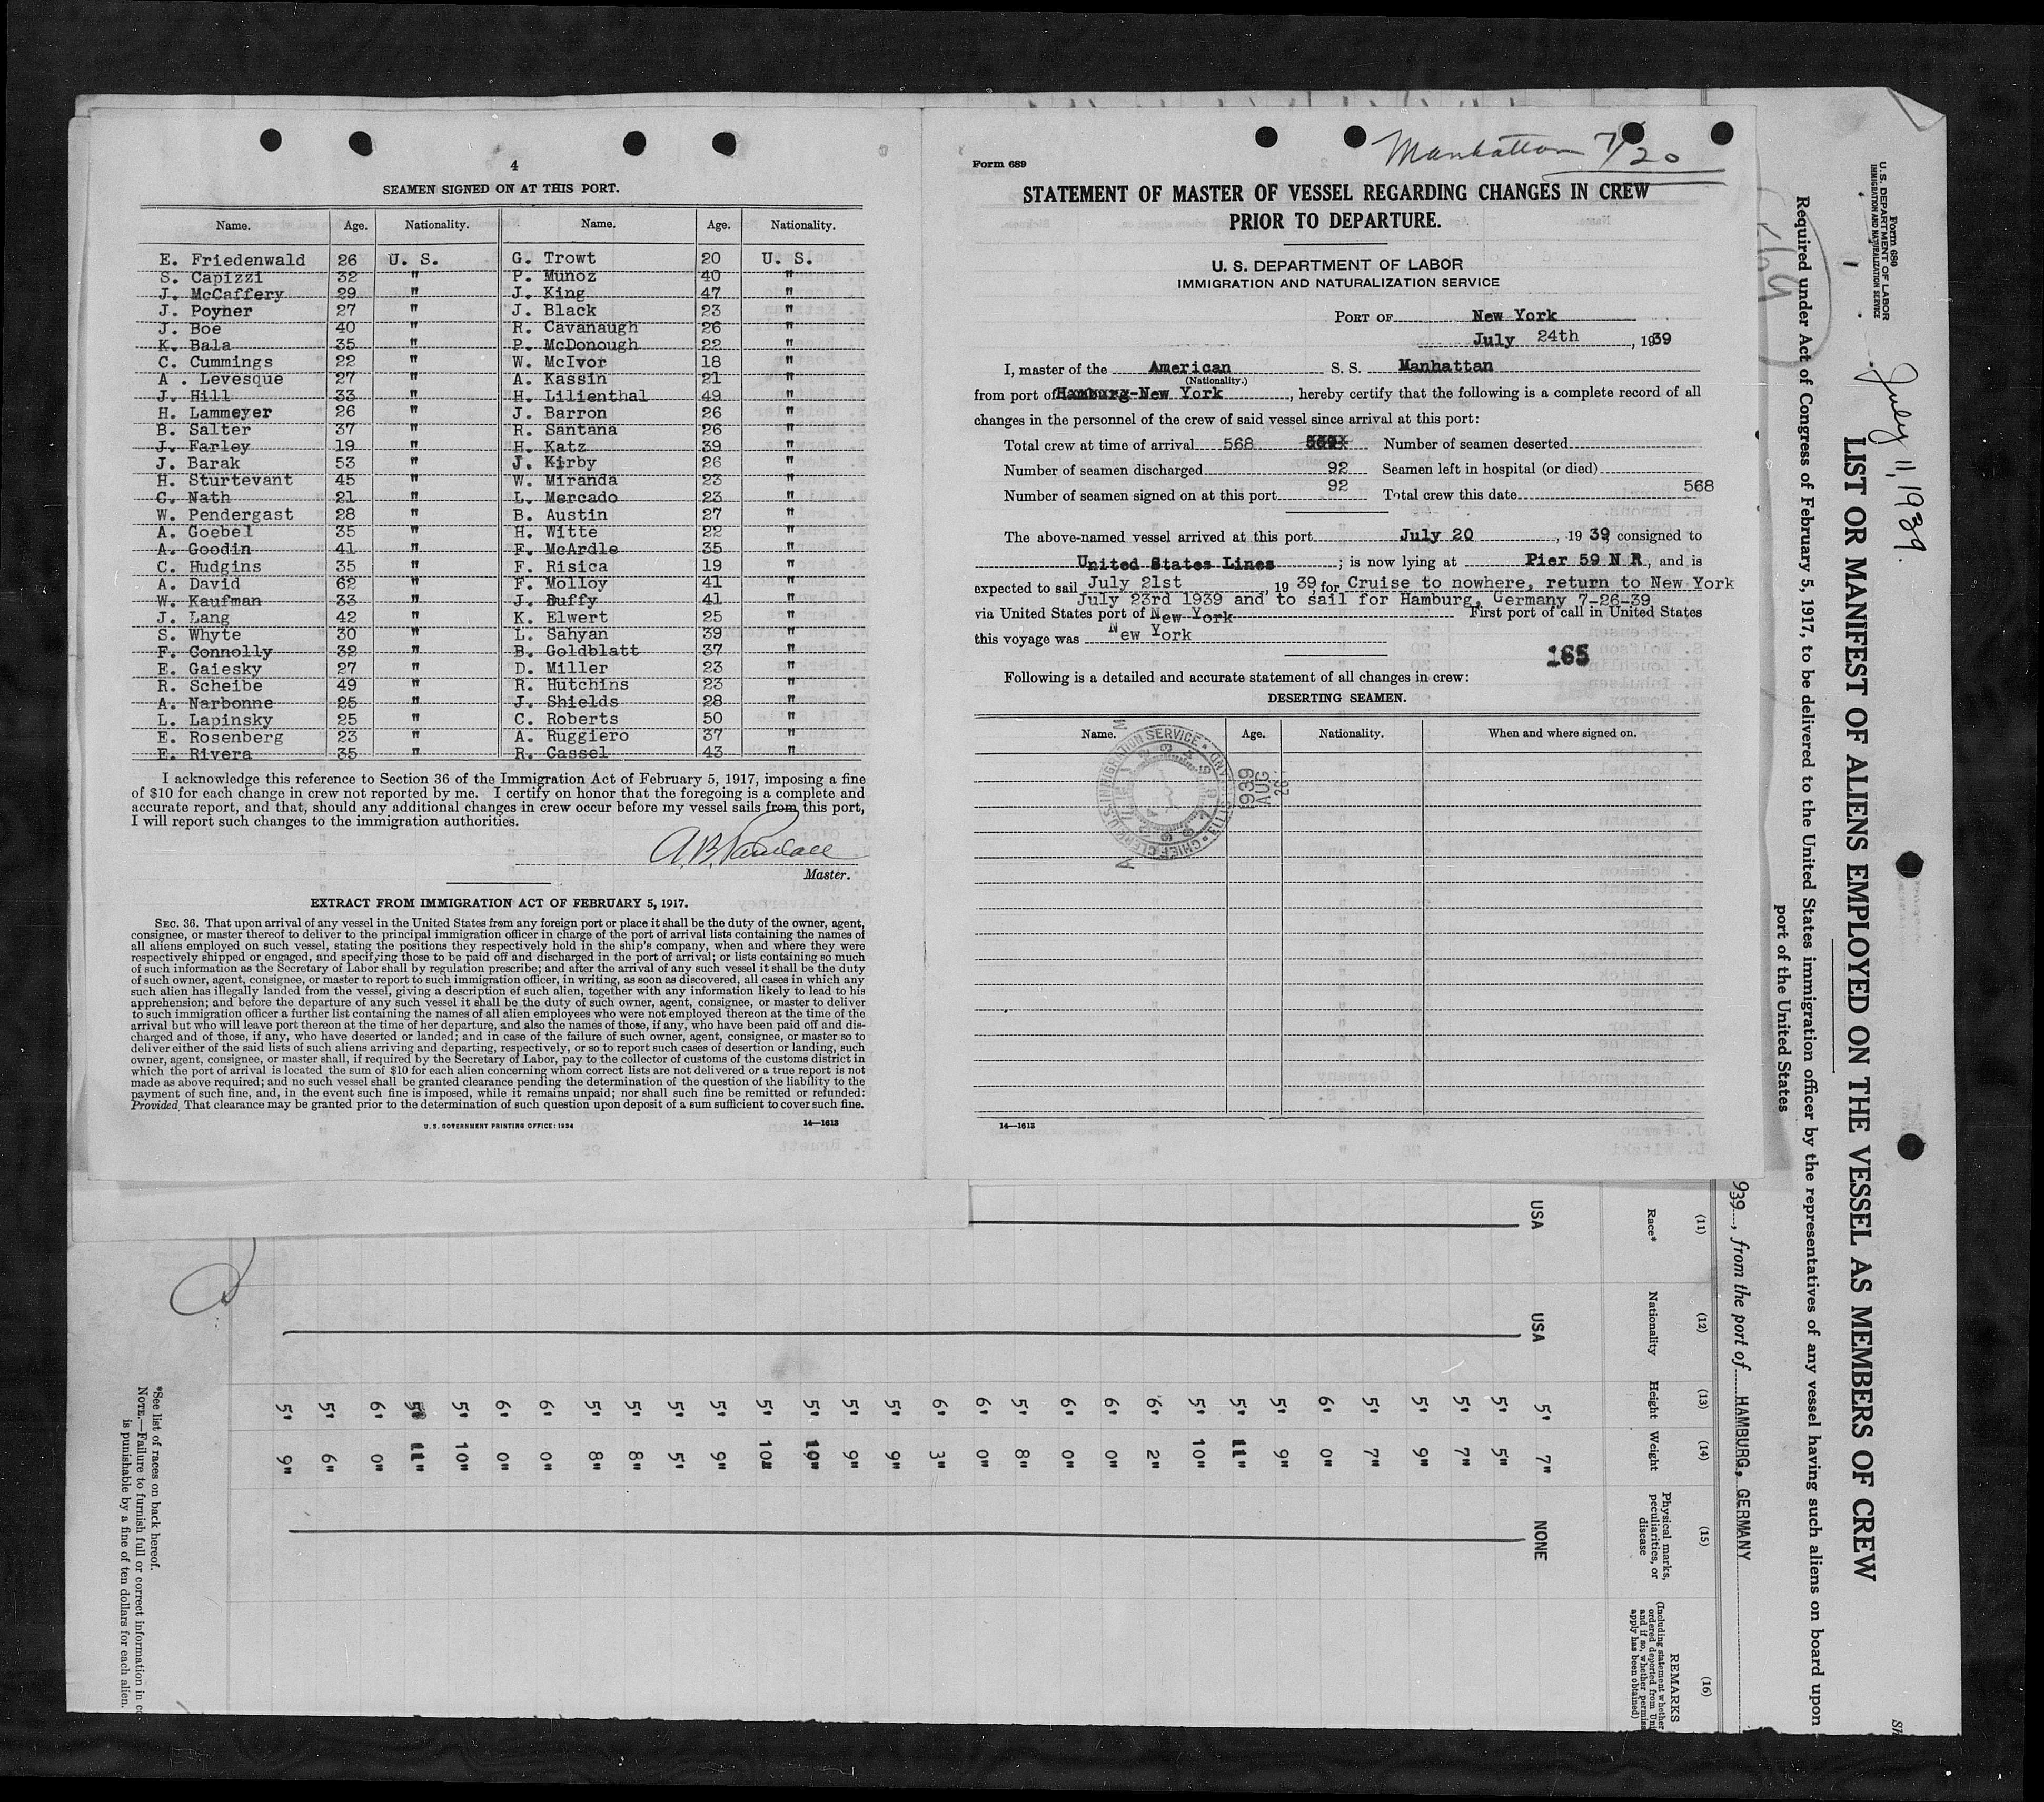 4
SEAMEN SIGNED ON AT THIS PORT.
Name. Age. Nationality. Name. Age. Nationality.
E. Friedenwald 26 U. S. G. Trowt 20 U. S.
S. Capizzi 32 " P. Munoz 40 "
J. McCaffery 29 " J. King 47 "
J. Poyner 27 " J. Black 23 "
J. Boe 40 " R. Cavanaugh 26 "
K. Bala 35 " P. McDonough 22 "
C. Cummings 22 " W. McIvor 18 "
A . Levesque 27 " A. Kassin 21 "
J. Hill 33 " H. Lilienthal 49 "
H. Lammeyer 26 " J. Barron 26 "
B. Salter 37 " R. Santana 26 "
J. Farley 19 " H. Katz 39 "
J. Barak 53 " J. Kirby 26 "
H. Sturtevant 45 " W. Miranda 23 "
C. Nath 21 " L. Mercado 23 "
W. Pendergast 28 " B. Austin 27 "
A. Goebel 35 " H. Witte 22 "
A. Goodin 41 " F. McArdle 35 "
C. Hudgins 35 " F. Risica 19 "
A. David 62 " F. Molloy 41 "
W. Kaufman 33 " J. Duffy 41 "
J. Lang 42 " K. Elwert 25 "
S. Whyte 30 " L. Sahyan 39 "
F. Connolly 32 " B. Goldblatt 37 "
E. Gaiesky 27 " D. Miller 23 "
R. Scheibe 49 " R. Hutchins 23 "
A. Narbonne 25 " J. Shields 28 "
L. Lapinsky 25 " C. Roberts 50 "
E. Rosenberg 23 " A. Ruggiero 37 "
E. Rivera 35 " R. Cassel 43 "
I acknowledge this reference to Section 36 of the Immigration Act of February 5, 1917, imposing a fine
of $10 for each change in crew not reported by me. I certify on honor that the foregoing is a complete and
accurate report, and that, should any additional changes in crew occur before my vessel sails from this port,
I will report such changes to the immigration authorities.
A.B. Randall
Master.
EXTRACT FROM IMMIGRATION ACT OF FEBRUARY 5, 1917.
SEC. 36. That upon arrival of any vessel in the United States from any foreign port or place it shall be the duty of the owner, agent,
consignee, or master thereof to deliver to the principal immigration officer in charge of the port of arrival lists containing the names of
all aliens employed on such vessel, stating the positions they respectively hold in the ship's company, when and where they were
respectively shipped or engaged, and specifying those to be paid off and discharged in the port of arrival; or lists containing so much
of such information as the Secretary of Labor shall by regulation prescribe; and after the arrival of any such vessel it shall be the duty
of such owner, agent, consignee, or master to report to such immigration officer, in writing, as soon as discovered, all cases in which any
such alien has illegally landed from the vessel, giving a description of such alien, together with any information likely to lead to his
apprehension; and before the departure of any such vessel it shall be the duty of such owner, agent, consignee, or master to deliver
to such immigration officer a further list containing the names of all alien employees who were not employed thereon at the time of the
arrival but who will leave port thereon at the time of her departure, and also the names of those, if any, who have been paid off and dis-
charged and of those, if any, who have deserted or landed; and in case of the failure of such owner, agent, consignee, or master so to
deliver either of the said lists of such aliens arriving and departing, respectively, or so to report such cases of desertion or landing, such
owner, agent, consignee, or master shall, if required by the Secretary of Labor, pay to the collector of customs of the customs district in
which the port of arrival is located the sum of $10 for each alien concerning whom correct lists are not delivered or a true report is not
made as above required; and no such vessel shall be granted clearance pending the determination of the question of the liability to the
payment of such fine, and, in the event such fine is imposed, while it remains unpaid; nor shall such fine be remitted or refunded:
Provided, That clearance may be granted prior to the determination of such question upon deposit of a sum sufficient to cover such fine.
U. S. GOVERNMENT PRINTING OFFICE: 1934 14—1613
Manhattan 7/20
Form 689
STATEMENT OF MASTER OF VESSEL REGARDING CHANGES IN CREW
PRIOR TO DEPARTURE.
U. S. DEPARTMENT OF LABOR
IMMIGRATION AND NATURALIZATION SERVICE
PORT OF New York
July 24th, 1939
I, master of the American S. S. Manhattan
(Nationality.)
from port of Hamburg-New York, hereby certify that the following is a complete record of all
changes in the personnel of the crew of said vessel since arrival at this port:
Total crew at time of arrival 568 Number of seamen deserted
Number of seamen discharged 92 Seamen left in hospital (or died)
Number of seamen signed on at this port 92 Total crew this date 568
The above-named vessel arrived at this port July 20, 1939, consigned to
United States Lines; is now lying at Pier 59 N R, and is
expected to sail July 21st, 1939, for Cruise to nowhere, return to New York
July 23rd 1939 and to sail for Hamburg, Germany 7-26-39
via United States port of New York First port of call in United States
this voyage was New York
165
Following is a detailed and accurate statement of all changes in crew:
DESERTING SEAMEN.
Name. Age. Nationality. When and where signed on.
1939 AUG
14—1613
Form 680
U. S. DEPARTMENT OF LABOR
IMMIGRATION AND NATURALIZATION SERVICE
July 11, 1939.
LIST OR MANIFEST OF ALIENS EMPLOYED ON THE VESSEL AS MEMBERS OF CREW
Required under Act of Congress of February 5, 1917, to be delivered to the United States immigration officer by the representatives of any vessel having such aliens on board upon
port of the United States
939, from the port of HAMBURG, GERMANY
(11) (12) (13) (14) (15) (16)
Race* Nationality Height Weight Physical marks, peculiarities, or disease REMARKS
(Including statement whether
ordered deported from Uni
and if so, whether permis
apply has been obtained)
USA USA 5' 7" NONE
5' 5"
5' 7"
5' 9"
5' 7"
6' 0"
5' 9"
5' 11"
5' 10"
6' 2"
6' 0"
6' 0"
5' 8"
6' 0"
6' 3"
5' 9"
5' 9"
5' 10"
5' 10"
5' 9"
5' 5'
5' 8"
5' 8"
6' 0"
6' 0"
5' 10"
5' 11"
6' 0"
5' 6"
5' 9"
*See list of races on back hereof.
NOTE.—Failure to furnish full or correct information in c
is punishable by a fine of ten dollars for each alien.